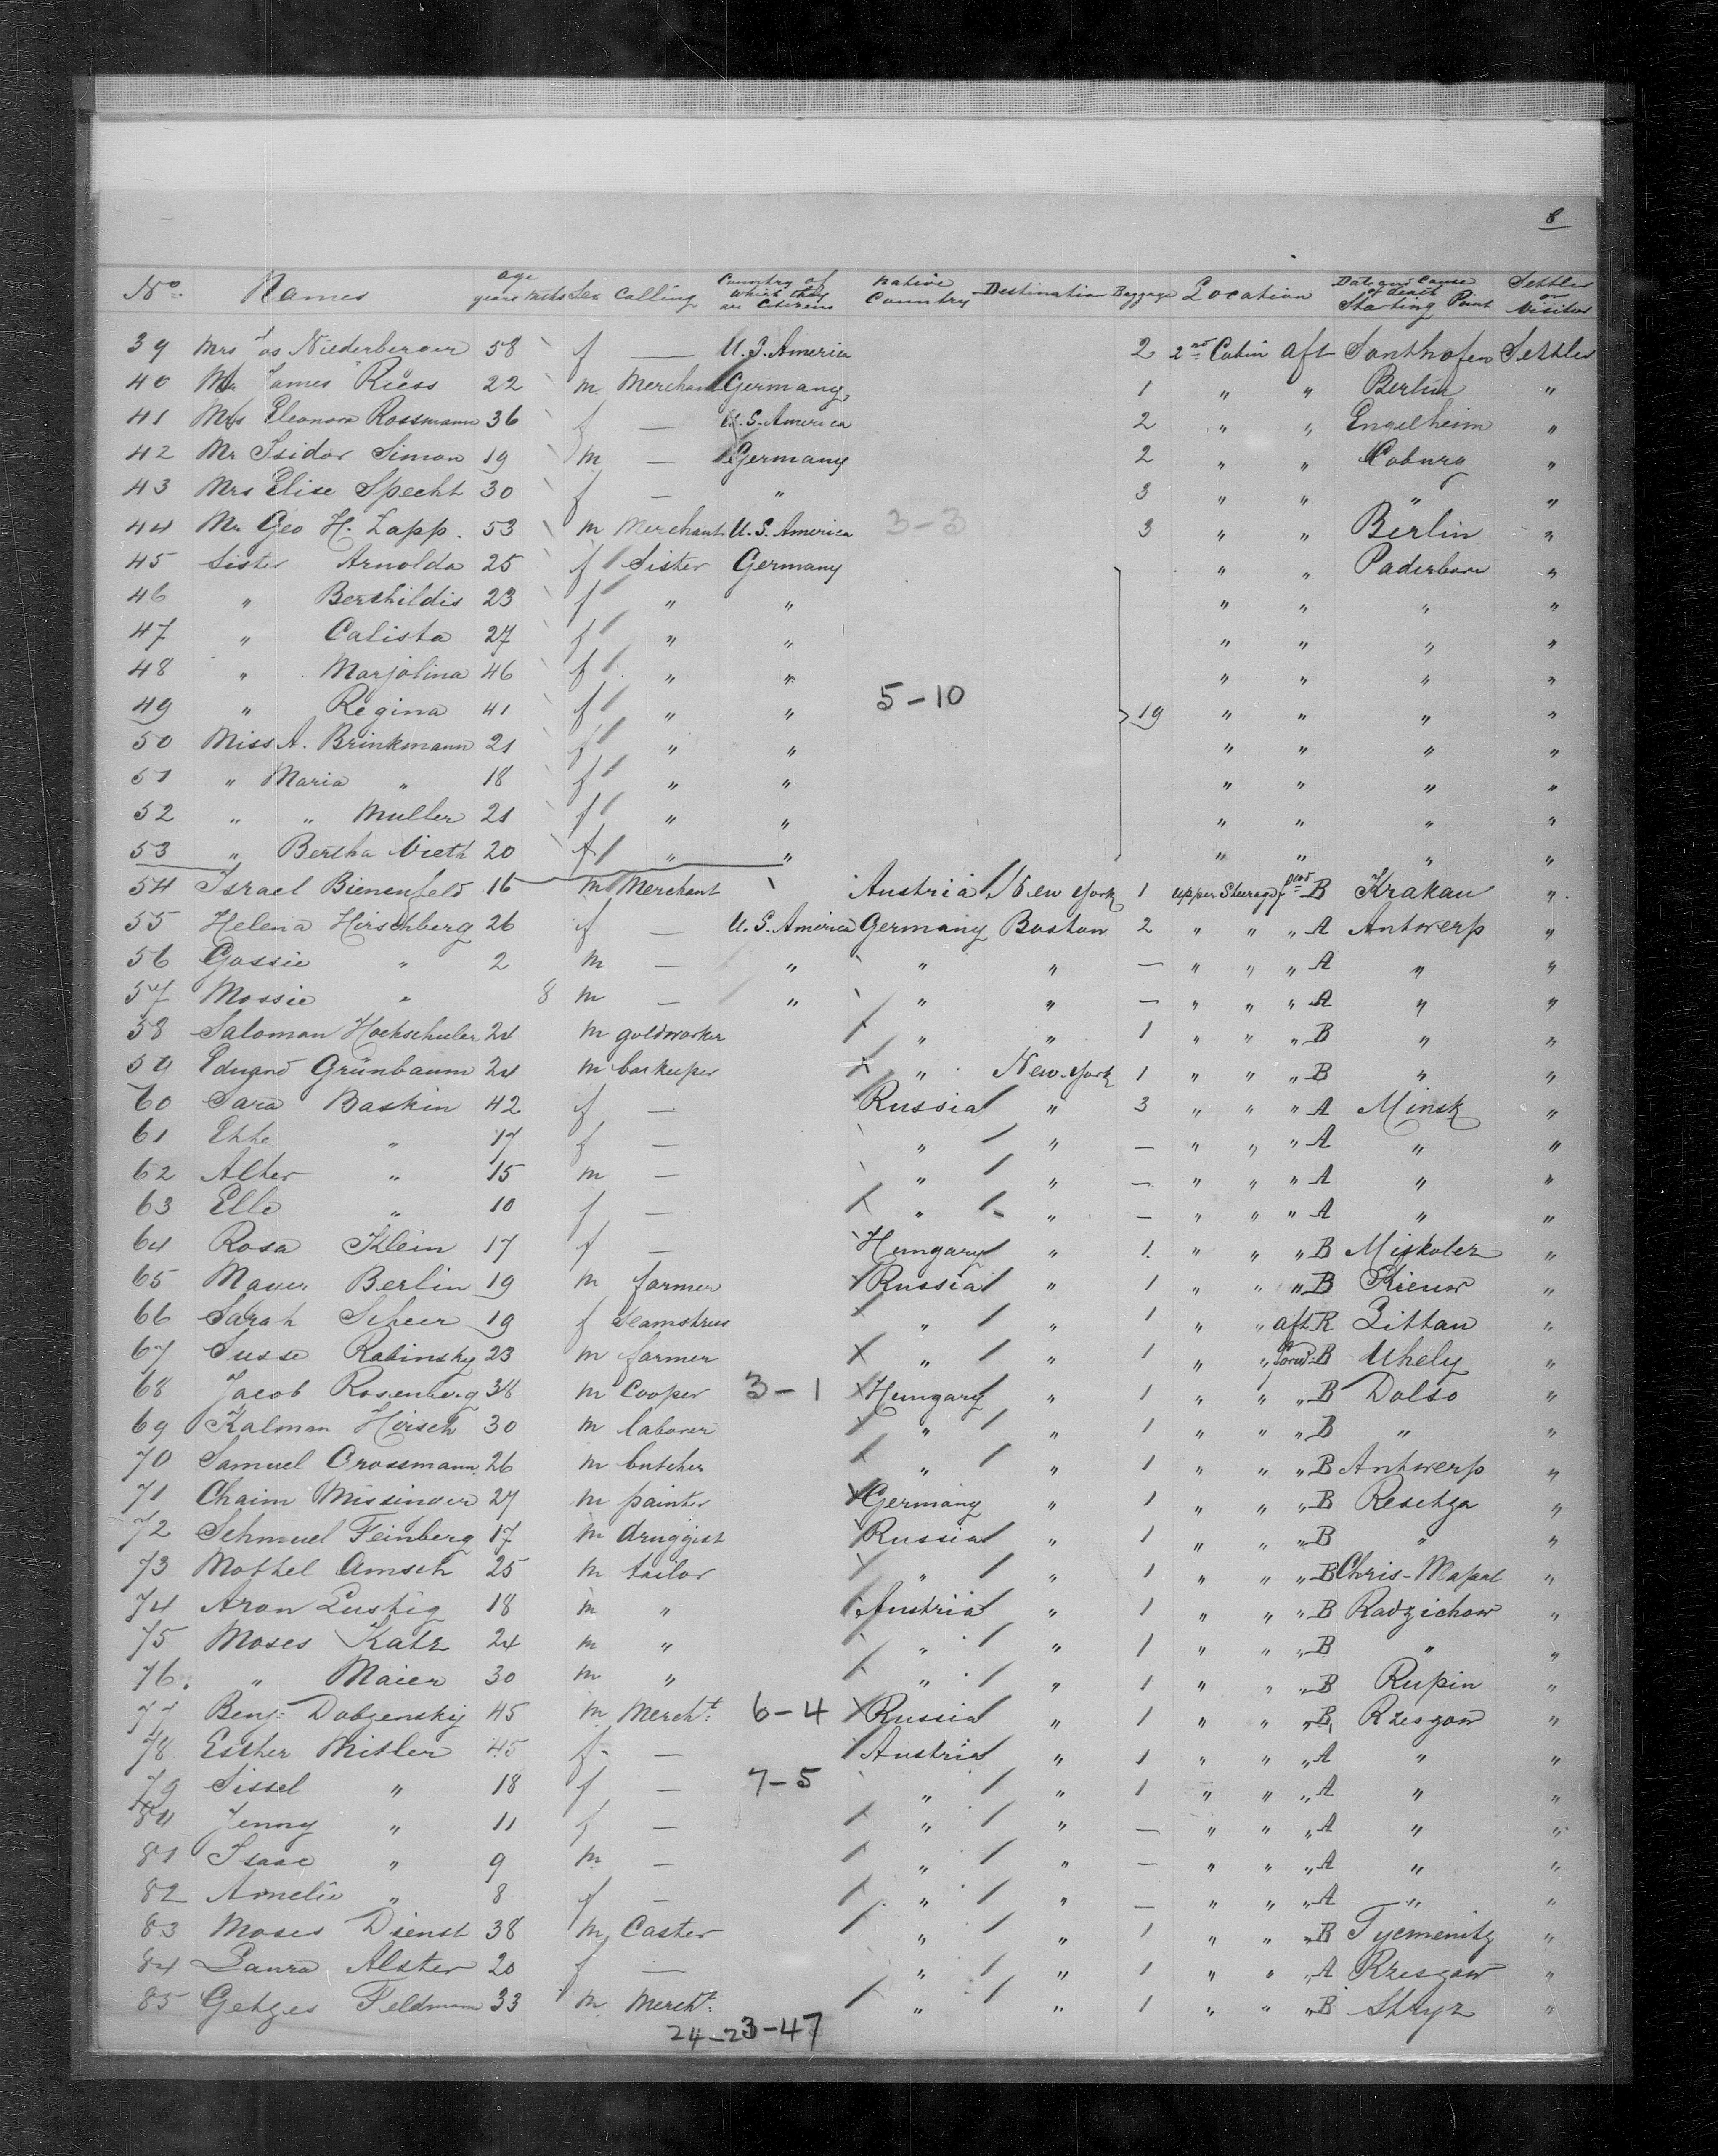 8
No. Names age years mths Sex Calling Country of which they are Citizens Native Country Destination Baggage Location Date and Cause of death Starting Point Settler or Visitor
39 Mrs Jos Niederberger 58 f — U.S. America 2 2nd Cabin aft Sonthofen Settler
40 Mr James Riess 22 m Merchant Germany 1 " " Berlin "
41 Mrs Eleonora Rossmann 36 f — U.S. America 2 " " Engelheim "
42 Mr Isidor Simon 19 m — Germany 2 " " Coburg "
43 Mrs Elise Specht 30 f — " 3 " " " "
44 Mr Geo H. Zapp. 53 m Merchant U.S. America 3-3 3 " " Berlin "
45 Sister Arnolda 25 f Sister Germany " " Paderborn "
46 " Berthildis 23 f " " " " " "
47 " Calista 27 f " " " " " "
48 " Marjolina 46 f " " " " " "
49 " Regina 41 f " " 5-10 19 " " " "
50 Miss A. Brinkmann 21 f " " " " " "
51 " Maria " 18 f " " " " " "
52 " " Muller 21 f " " " " " "
53 " Bertha Vieth 20 f " " " " " "
54 Israel Bienenfeld 16 m Merchant Austria New York 1 upper Steerage B Krakau "
55 Helena Hirschberg 26 f — U.S. America Germany Boston 2 " " " A Antwerp "
56 Gossie " 2 m — " " " — " " " A " "
57 Mossie " 8 m — " " " — " " " A " "
58 Saloman Hochschuler 24 m goldworker " " 1 " " " B " "
59 Eduard Grünbaum 24 m barkeeper " New-York 1 " " " B " "
60 Sara Baskin 42 f — Russia " 3 " " " A Minsk "
61 " 17 f — " " — " " " A " "
62 Alter " 15 m — " " — " " " A " "
63 Elle " 10 f — " " — " " " A " "
64 Rosa Klein 17 f — Hungary " 1 " " " B Miskolcz "
65 Mayer Berlin 19 m farmer Russia " 1 " " " B Kieuw "
66 Sarah Scheer 19 f Seamstress " " 1 " " aft R Zittau "
67 Susse Rabinsky 23 m farmer " " 1 " " forwd B Uhely "
68 Jacob Rosenberg 38 m Cooper 3-1 Hungary " 1 " " " B Dolso "
69 Kalman Hirsch 30 m laborer " " 1 " " " B " "
70 Samuel Grossmann 26 m butcher " " 1 " " " B Antwerp "
71 Chaim Missinger 27 m painter Germany " 1 " " " B Resetza "
72 Schmuel Feinberg 17 m druggist Russia " 1 " " " B " "
73 Mothel Amsch 25 m tailor " " 1 " " " B "
74 Aron Lustig 18 m " Austria " 1 " " " B Radzichow "
75 Moses Katz 24 m " " " 1 " " " B " "
76. " Maier 30 m " " " 1 " " " B Rupin "
77 Benj: Dobzensky 45 m Mercht: 6-4 Russia " 1 " " " B Rzeszow "
78 Esther Mitler 45 f — Austria " 1 " " " A " "
79 Sissel " 18 f — 7-5 " " 1 " " " A " "
80 Jenny " 11 f — " " — " " " A " "
81 Isaac " 9 m — " " — " " " A " "
82 Amelie " 8 f — " " — " " " A " "
83 Moses Dienst 38 m Caster " " 1 " " " B Tycmenitz "
84 Laura Alster 20 f — " " 1 " " " A Rzeszow "
85 Getzes Feldmann 33 m Mercht: " " 1 " " " B Stryz "
24-23-47